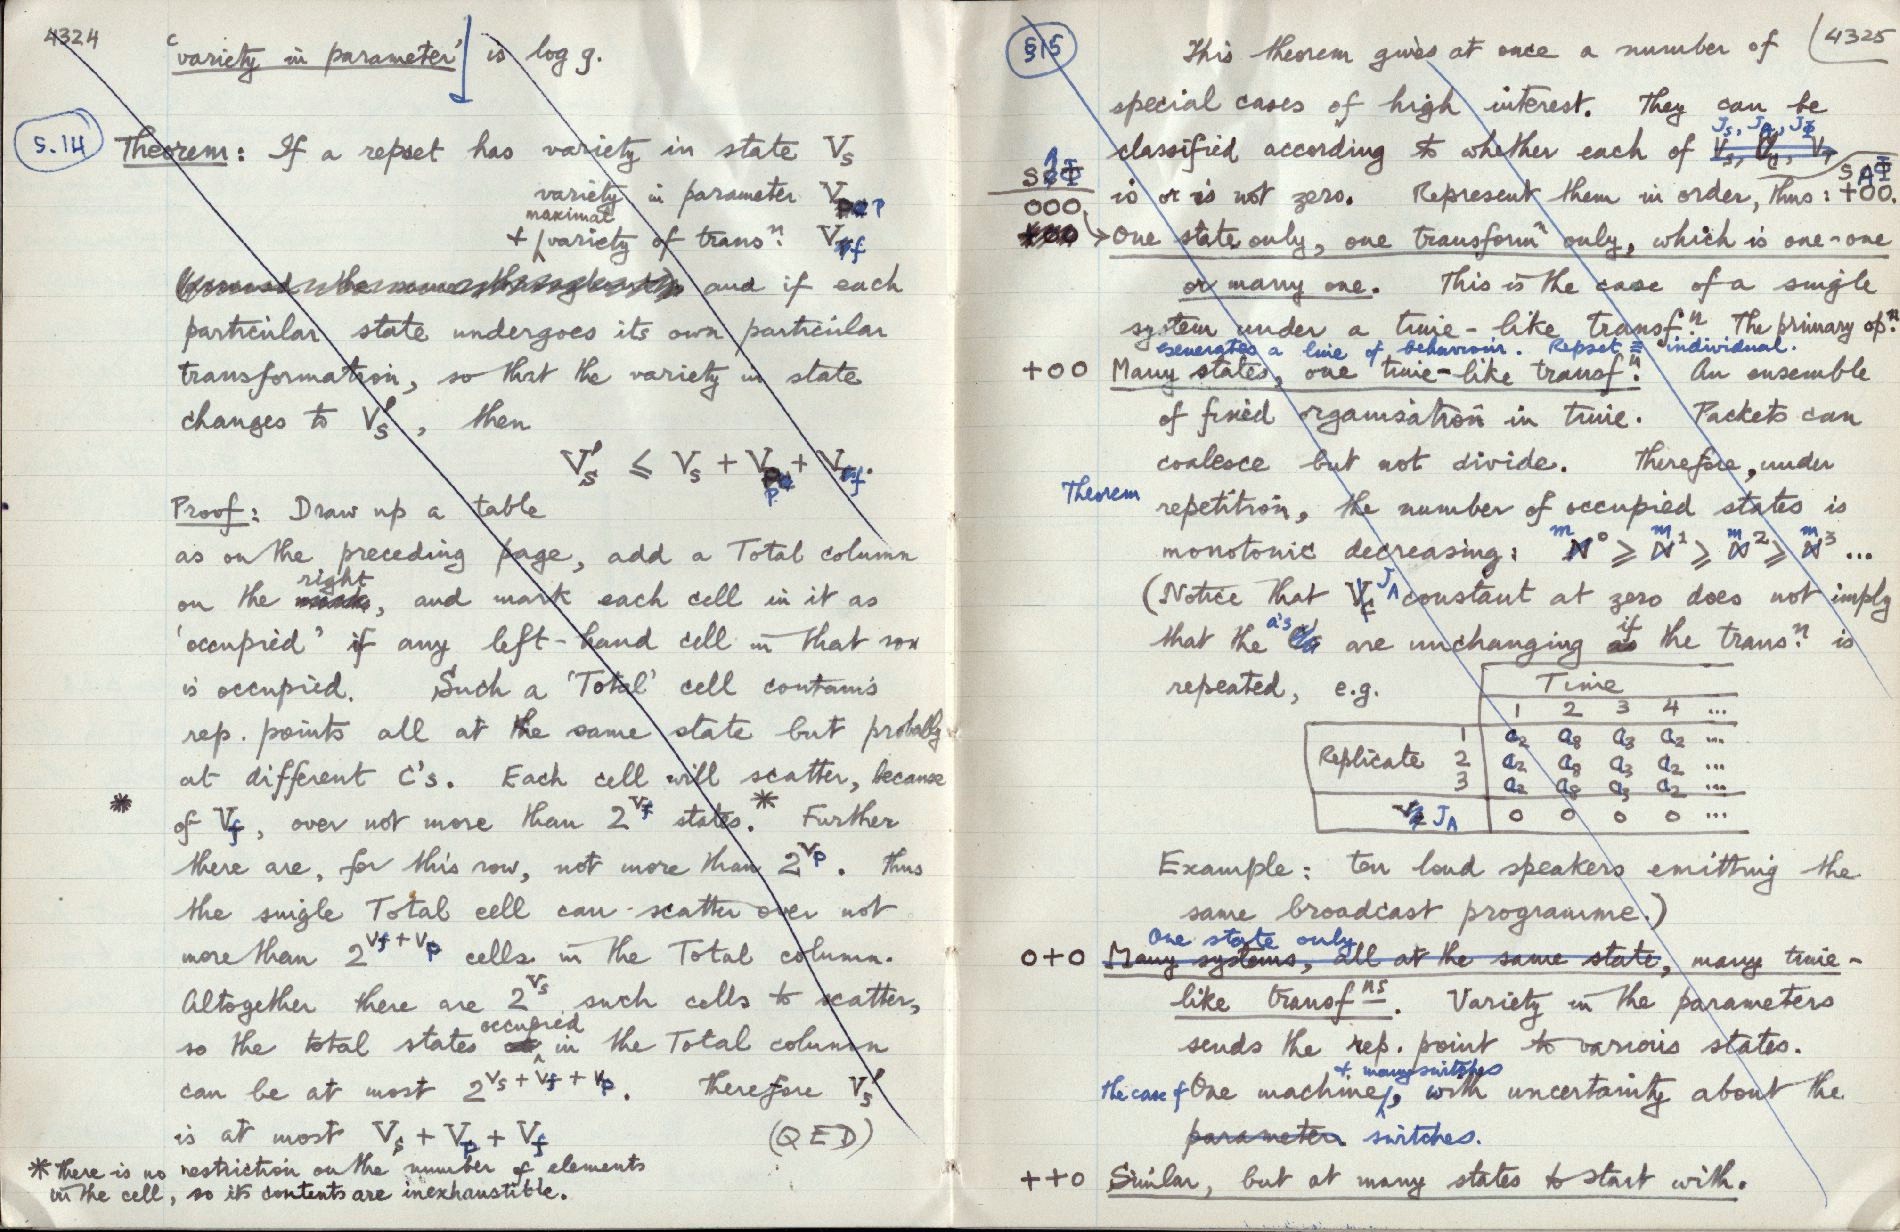 4324
'variety in parameter' is log g.
S.14
Theorem: If a repset has variety in state Vs
variety in parameter Vp
maximal
+ variety of transⁿ. Vf
and if each
particular state undergoes its own particular
transformation, so that the variety in state
changes to Vs', then
Vs' ⩽ Vs + Vp + Vf.
Proof: Draw up a table
as on the preceding page, add a Total column
right
on the , and mark each cell in it as
'occupied' if any left-hand cell in that row
is occupied. Such a 'Total' cell contains
rep. points all at the same state but probably
at different C's. Each cell will scatter, because
* of Vf, over not more than 2^Vf states.* Further
there are, for this row, not more than 2^Vp. Thus
the single Total cell can scatter over not
more than 2^Vf+Vp cells in the Total column.
Altogether there are 2^Vs such cells to scatter,
occupied
so the total states in the Total column
can be at most 2^Vs+Vf+Vp. Therefore Vs'
is at most Vs + Vp + Vf (QED)
* There is no restriction on the number of elements
in the cell, so its contents are inexhaustible.
§15
4325
This theorem gives at once a number of
special cases of high interest. They can be
Js, JA, JΦ
classified according to whether each of Vs,
S A Φ
is or is not zero. Represent them in order, thus: +00.
000 One state only, one transformⁿ only, which is one-one
or many one. This is the case of a single
system under a time-like transfⁿ. The primary opⁿ.
generates a line of behaviour. Repset ≡ individual.
+00 Many states, one time-like transfⁿ. An ensemble
of fixed organisation in time. Packets can
coalesce but not divide. Therefore, under
Theorem
repetition, the number of occupied states is
monotonic decreasing: m⁰ ⩾ m¹ ⩾ m² ⩾ m³ ...
(Notice that JA constant at zero does not imply
that the a's are unchanging if the transⁿ. is
repeated, e.g.
Time
1 2 3 4 ...
Replicate
1 a₂ a₈ a₃ a₂ ...
2 a₂ a₈ a₃ a₂ ...
3 a₂ a₈ a₃ a₂ ...
JA 0 0 0 0 ...
Example: ten loud speakers emitting the
same broadcast programme.)
One state only
0+0 Many systems, all at the same state, many time-
like transfⁿˢ. Variety in the parameters
sends the rep. point to various states.
+ many switches
The case of One machine, with uncertainty about the
parameter switches.
++0 Similar, but at many states to start with.